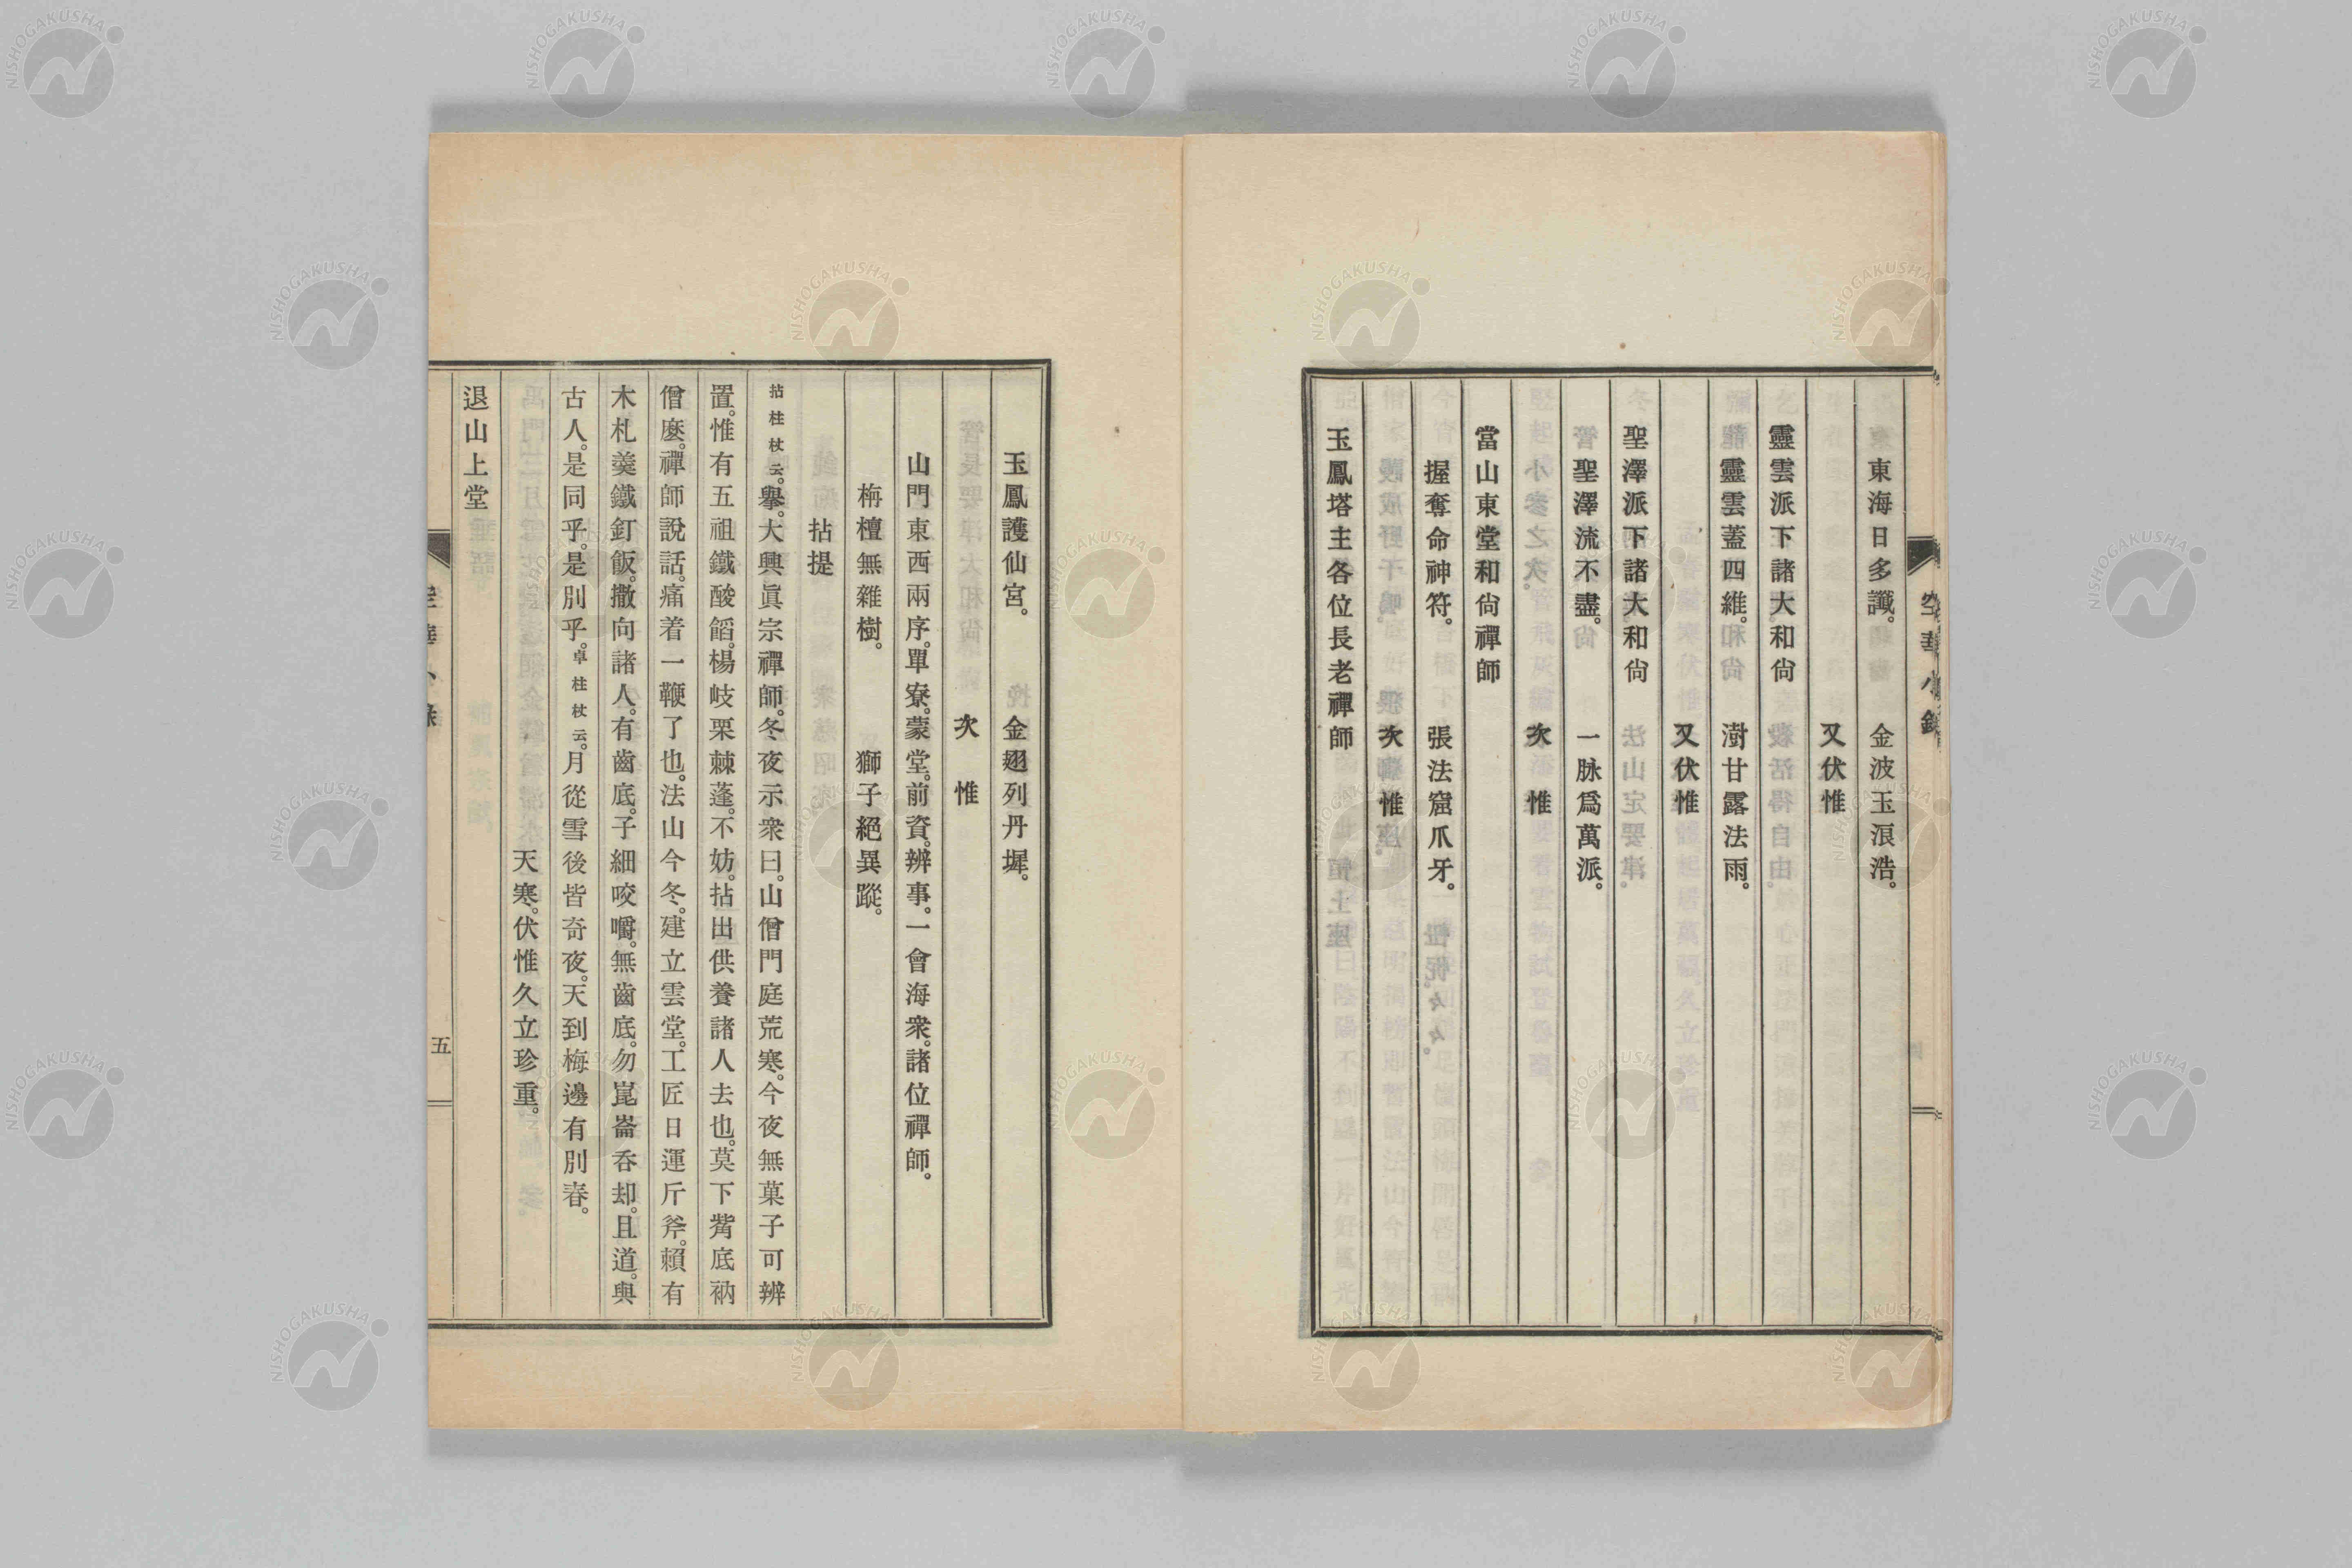 空華小錄
東海日多讖。 金波玉浪浩。
又伏惟
靈雲派下諸大和尙
靈雲蓋四維。 澍甘露法雨。
又伏惟
聖澤派下諸大和尙
聖澤流不盡。 一脉爲萬派。
次惟
當山東堂和尙禪師
握奪命神符。 張法窟爪牙。
次惟
玉鳳塔主各位長老禪師
玉鳳護仙宮。 金翅列丹墀。
次惟
山門東西兩序。單寮。蒙堂。前資。辨事。一會海衆。諸位禪師。
栴檀無雜樹。 獅子絕異蹤。
拈提
拈柱杖云。擧。大興眞宗禪師。冬夜示衆曰。山僧門庭荒寒。今夜無菓子可辨
置。惟有五祖鐵酸餡。楊岐栗棘蓬。不妨。拈出供養諸人去也。莫下觜底衲
僧麽。禪師說話。痛着一鞭了也。法山今冬。建立雲堂。工匠日運斤斧。賴有
木札羹鐵釘飯。撒向諸人。有齒底。子細咬嚼。無齒底。勿崑崙呑却。且道。與
古人。是同乎。是別乎。卓柱杖云。月從雪後皆奇夜。天到梅邊有別春。
天寒。伏惟久立珍重。
退山上堂
五
NISHOGAKUSHA